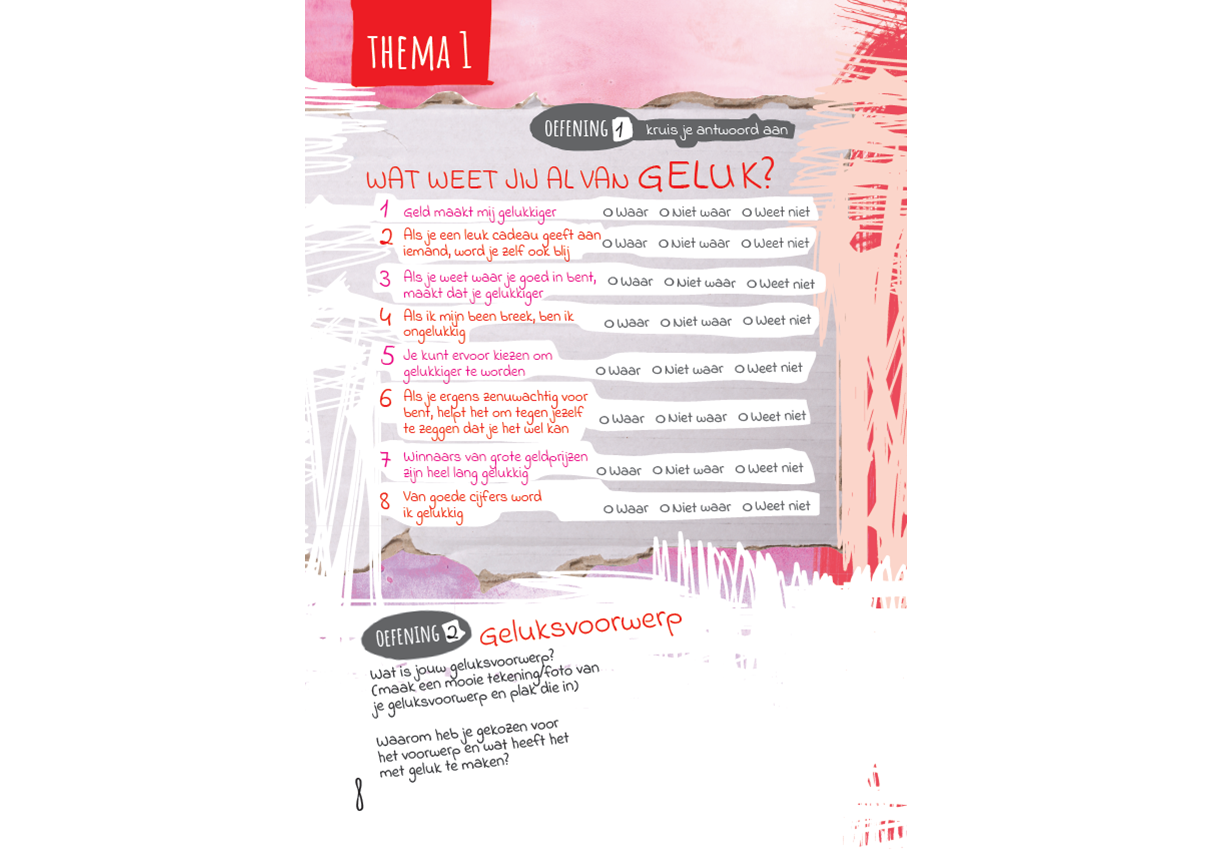 THEMA 1
OEFENING 1 kruis je antwoord aan
WAT WEET JIJ AL VAN GELUK?
1 Geld maakt mij gelukkiger O Waar O Niet waar O Weet niet
2 Als je een leuk cadeau geeft aan
iemand, word je zelf ook blij O Waar O Niet waar O Weet niet
3 Als je weet waar je goed in bent,
maakt dat je gelukkiger O Waar O Niet waar O Weet niet
4 Als ik mijn been breek, ben ik
ongelukkig O Waar O Niet waar O Weet niet
5 Je kunt ervoor kiezen om
gelukkiger te worden O Waar O Niet waar O Weet niet
6 Als je ergens zenuwachtig voor
bent, helpt het om tegen jezelf
te zeggen dat je het wel kan O Waar O Niet waar O Weet niet
7 Winnaars van grote geldprijzen
zijn heel lang gelukkig O Waar O Niet waar O Weet niet
8 Van goede cijfers word
ik gelukkig O Waar O Niet waar O Weet niet
OEFENING 2 Geluksvoorwerp
Wat is jouw geluksvoorwerp?
(maak een mooie tekening/foto van
je geluksvoorwerp en plak die in)
Waarom heb je gekozen voor
het voorwerp en wat heeft het
met geluk te maken?
8